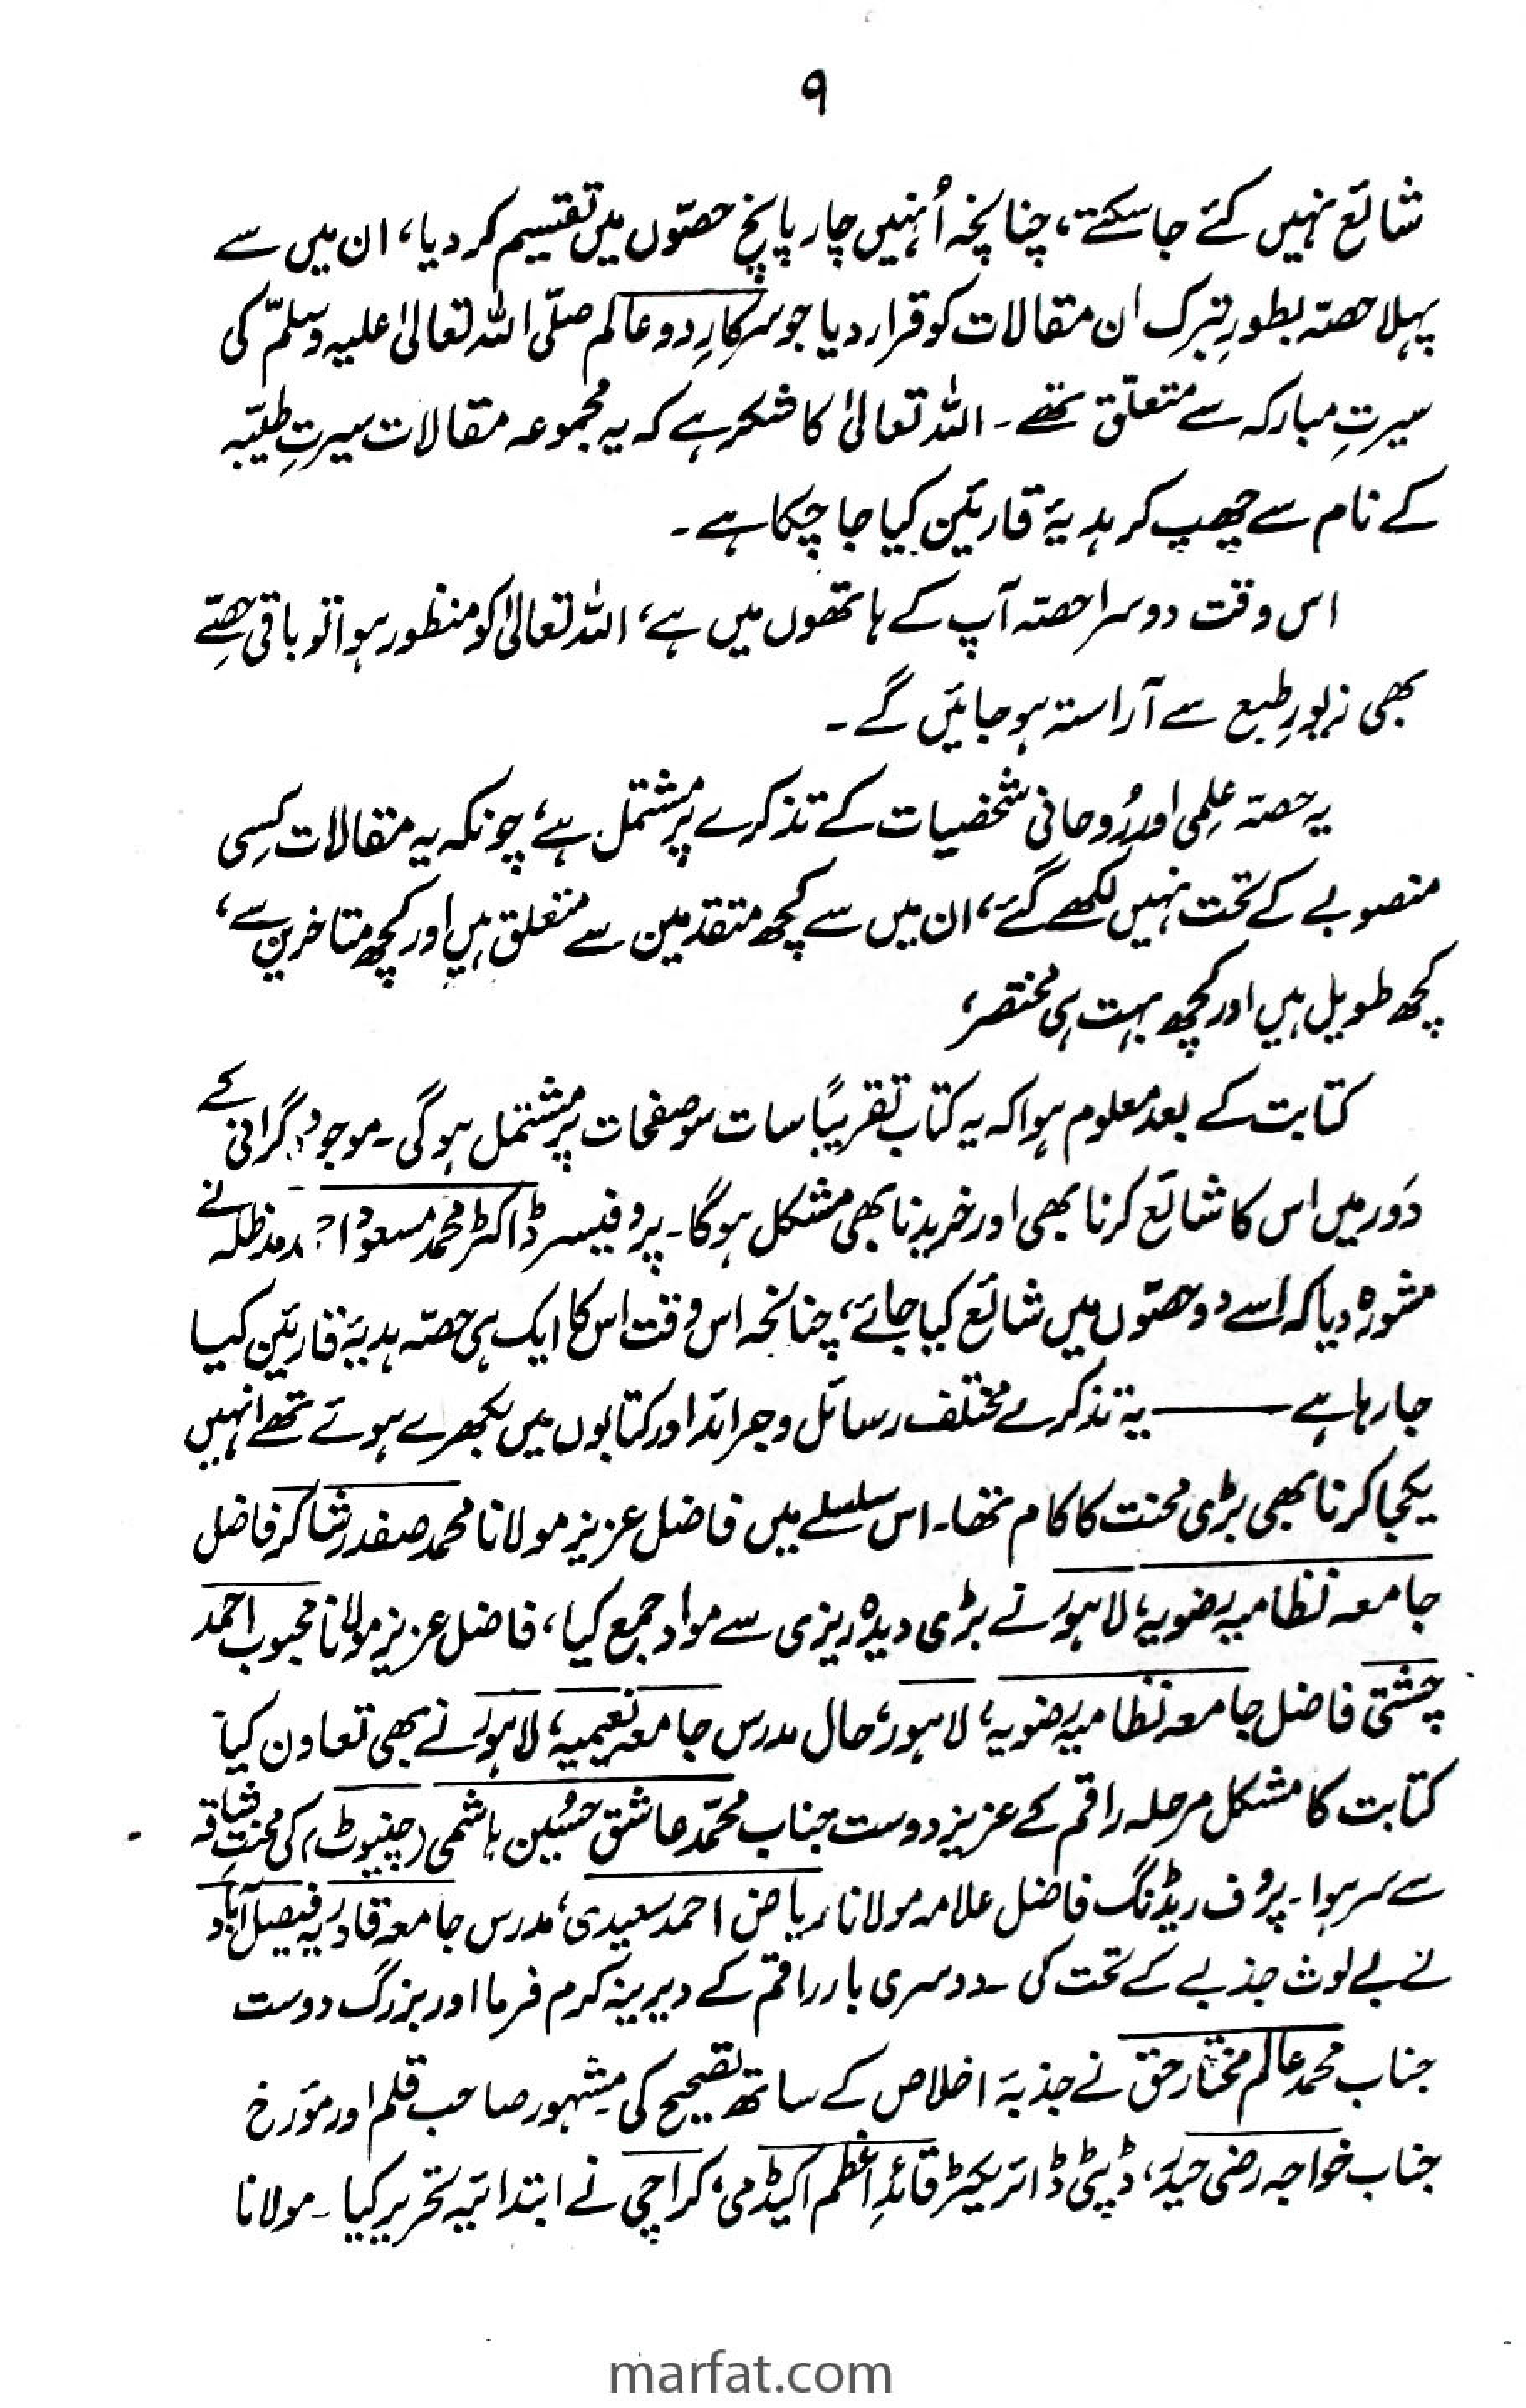 ۹
شائع نہیں کئے جا سکتے، چنانچہ اُنہیں چار پانچ حصّوں میں تقسیم کر دیا، ان میں سے
پہلا حصہ بطورِ تبرک ان مقالات کو قرار دیا جو سرکارِ دو عالم صلّی اللہ تعالیٰ علیہ وسلّم کی
سیرتِ مبارکہ سے متعلّق تھے۔ اللہ تعالیٰ کا شکر ہے کہ یہ مجموعہ مقالات سیرتِ طیّبہ
کے نام سے چھپ کر ہدیۂ قارئین کیا جا چکا ہے۔
اس وقت دوسرا حصہ آپ کے ہاتھوں میں ہے، اللہ تعالیٰ کو منظور ہوا تو باقی حصّے
بھی زیورِ طبع سے آراستہ ہو جائیں گے۔
یہ حصہ عِلمی اور رُوحانی شخصیات کے تذکرے پر مشتمل ہے، چونکہ یہ مقالات کِسی
منصوبے کے تحت نہیں لکھے گئے، ان میں سے کچھ متقدمین سے متعلق ہیں اور کچھ متاخرین سے،
کچھ طویل ہیں اور کچھ بہت ہی مختصر،
کتابت کے بعد معلوم ہوا کہ یہ کتاب تقریباً سات سو صفحات پر مشتمل ہو گی۔ موجودہ گرانی کے
دَور میں اس کا شائع کرنا بھی اور خریدنا بھی مشکل ہوگا۔ پروفیسر ڈاکٹر محمد مسعود احمد مدظلہ نے
مشورہ دیا کہ اسے دو حصّوں میں شائع کیا جائے، چنانچہ اس وقت اس کا ایک ہی حصّہ ہدیۂ قارئین کیا
جا رہا ہے ——— یہ تذکرے مختلف رسائل و جرائد اور کتابوں میں بکھرے ہوئے تھے انہیں
یکجا کرنا بھی بڑی محنت کا کام تھا۔ اس سلسلے میں فاضل عزیز مولانا محمد صفدر شاکر فاضل
جامعہ نظامیہ رضویہ، لاہور نے بڑی دیدہ ریزی سے مواد جمع کیا، فاضل عزیز مولانا محبوب احمد
چشتی فاضل جامعہ نظامیہ رضویہ، لاہور، حال مدرس جامعہ نعیمیہ، لاہور نے بھی تعاون کیا
کتابت کا مشکل مرحلہ راقم کے عزیز دوست جناب محمّد عاشق حسُین ہاشمی (چنیوٹ) کی محنتِ شاقہ
سے سر ہوا۔ پروف ریڈنگ فاضل علامہ مولانا ریاض احمد سعیدی، مدرس جامعہ قادریہ فیصل آباد
نے بے لوث جذبے کے تحت کی۔ دوسری بار راقم کے دیرینہ کرم فرما اور بزرگ دوست
جناب محمد عالم مختار حق نے جذبۂ اخلاص کے ساتھ تصحیح کی۔ مشہور صاحب قلم اور مؤرخ
جناب خواجہ رضی حیدر، ڈپٹی ڈائریکٹر قائدِ اعظم اکیڈمی، کراچی نے ابتدائیہ تحریر کیا۔ مولانا
marfat.com